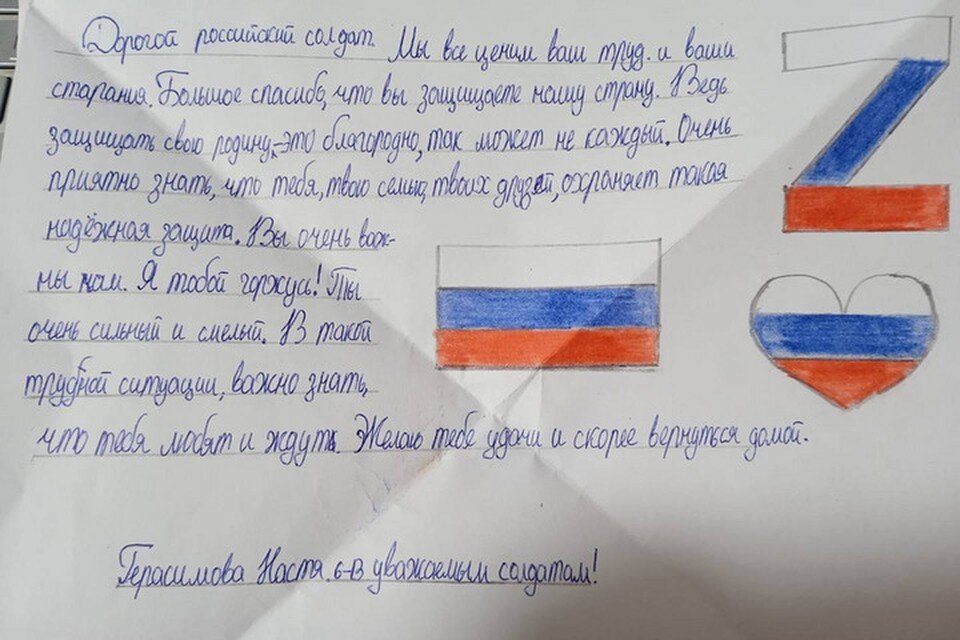 Дорогой российский солдат. Мы все ценим ваш труд. и ваши
старания. Большое спасибо, что вы защищаете нашу страну. Ведь
защищать свою родину,-это благородно, так может не каждый. Очень
приятно знать, что тебя, твою семью, твоих друзей, охраняет такая
надёжная защита. Вы очень важ-
ны нам. Я тобой горжусь! Ты
очень сильный и смелый. В такой
трудной ситуации, важно знать,
что тебя любят и ждут. Желаю тебе удачи и скорее вернуться домой.
Герасимова Настя. 6-В уважаемым солдатам!